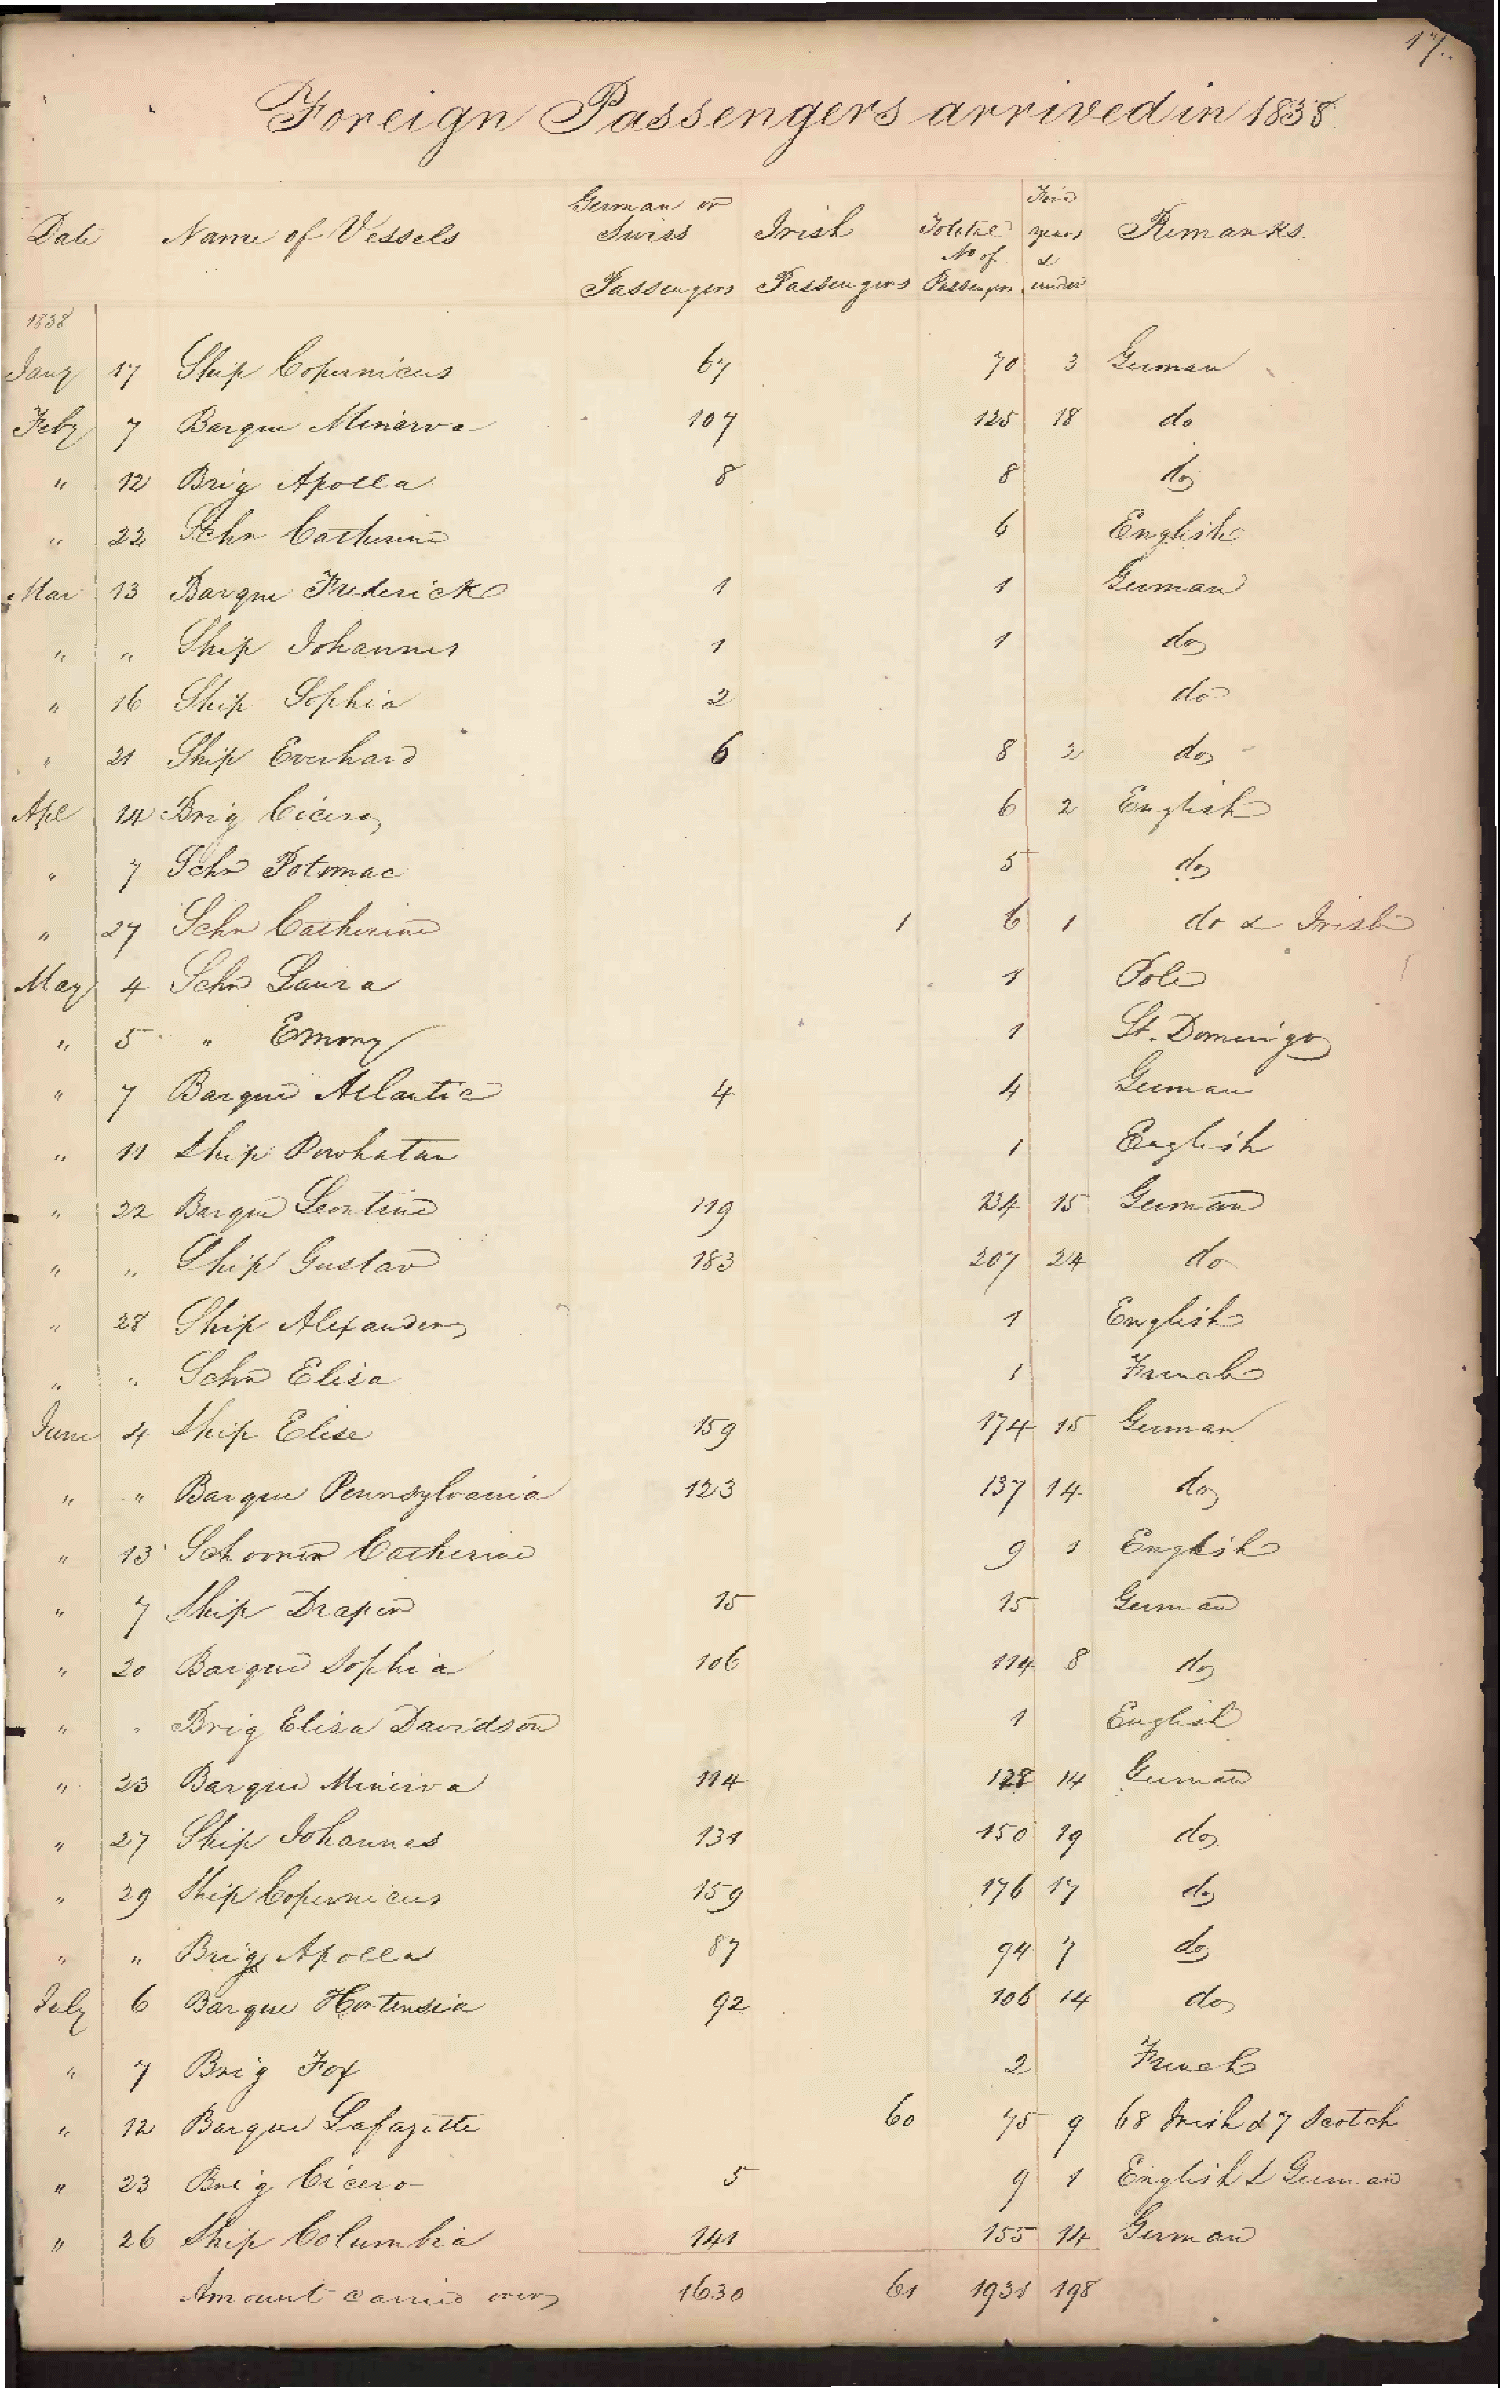 17.
Foreign Passengers arrived in 1838
Date Name of Vessels German or Swiss Passengers Irish Passengers Total No of Passengers years & under Remarks.
1838
Jany 17 Ship Copernicus 67 70 3 German
Feby 7 Barque Minerva 107 125 18 do
" 12 Brig Apollo 8 8 do
" 22 Schr Catherine 6 English
Mar 13 Barque Frederick 1 1 German
" " Ship Johannes 1 1 do
" 16 Ship Sophia 2 do
" 21 Ship Everhard 6 8 2 do
Apl 14 Brig Cicero 6 2 English
" 7 Schr Potomac 5 do
" 27 Schr Catherine 1 6 1 do & Irish
May 4 Schr Laura 1 Pole
" 5 " Emmy 1 St. Domingo
" 7 Barque Atlantic 4 4 German
" 11 Ship Powhatan 1 English
" 22 Barque Leontine 119 134 15 German
" " Ship Gustav 183 207 24 do
" 28 Ship Alexander 1 English
" " Schr Elisa 1 French
June 4 Ship Elise 159 174 15 German
" " Barque Pennsylvania 123 137 14 do
" 13 Schooner Catherine 9 1 English
" 7 Ship Draper 15 15 German
" 20 Barque Sophia 106 114 8 do
" " Brig Elisa Davidson 1 English
" 23 Barque Minerva 114 128 14 German
" 27 Ship Johannes 131 150 19 do
" 29 Ship Copernicus 159 176 17 do
" " Brig Apollo 87 94 7 do
July 6 Barque Hortensia 92 106 14 do
" 7 Brig Fox 2 French
" 12 Barque Lafayette 60 75 9 68 Irish & 7 Scotch
" 23 Brig Cicero 5 9 1 English & German
" 26 Ship Columbia 141 155 14 German
Amount carried over 1630 61 1931 198